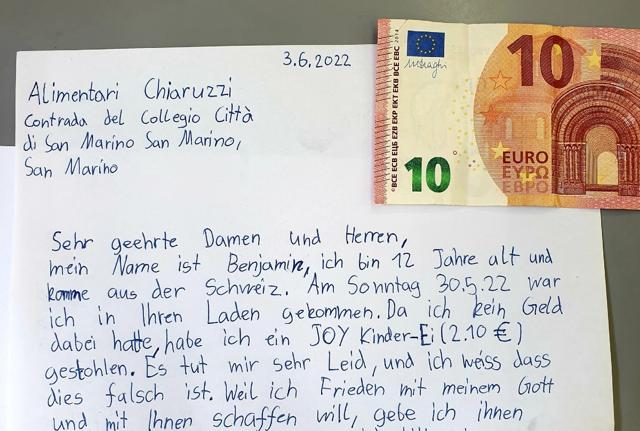 3.6.2022
Alimentari Chiaruzzi
Contrada del Collegio Città
di San Marino San Marino,
San Marino
Sehr geehrte Damen und Herren,
mein Name ist Benjamin, ich bin 12 Jahre alt und
komme aus der Schweiz. Am Sonntag 30.5.22 war
ich in Ihren Laden gekommen. Da ich kein Geld
dabei hatte, habe ich ein JOY Kinder-Ei (2.10 €)
gestohlen. Es tut mir sehr Leid, und ich weiss dass
dies falsch ist. Weil ich Frieden mit meinem Gott
und mit Ihnen schaffen will, gebe ich ihnen
10
EURO
ΕΥΡΩ
ЕВРО
10